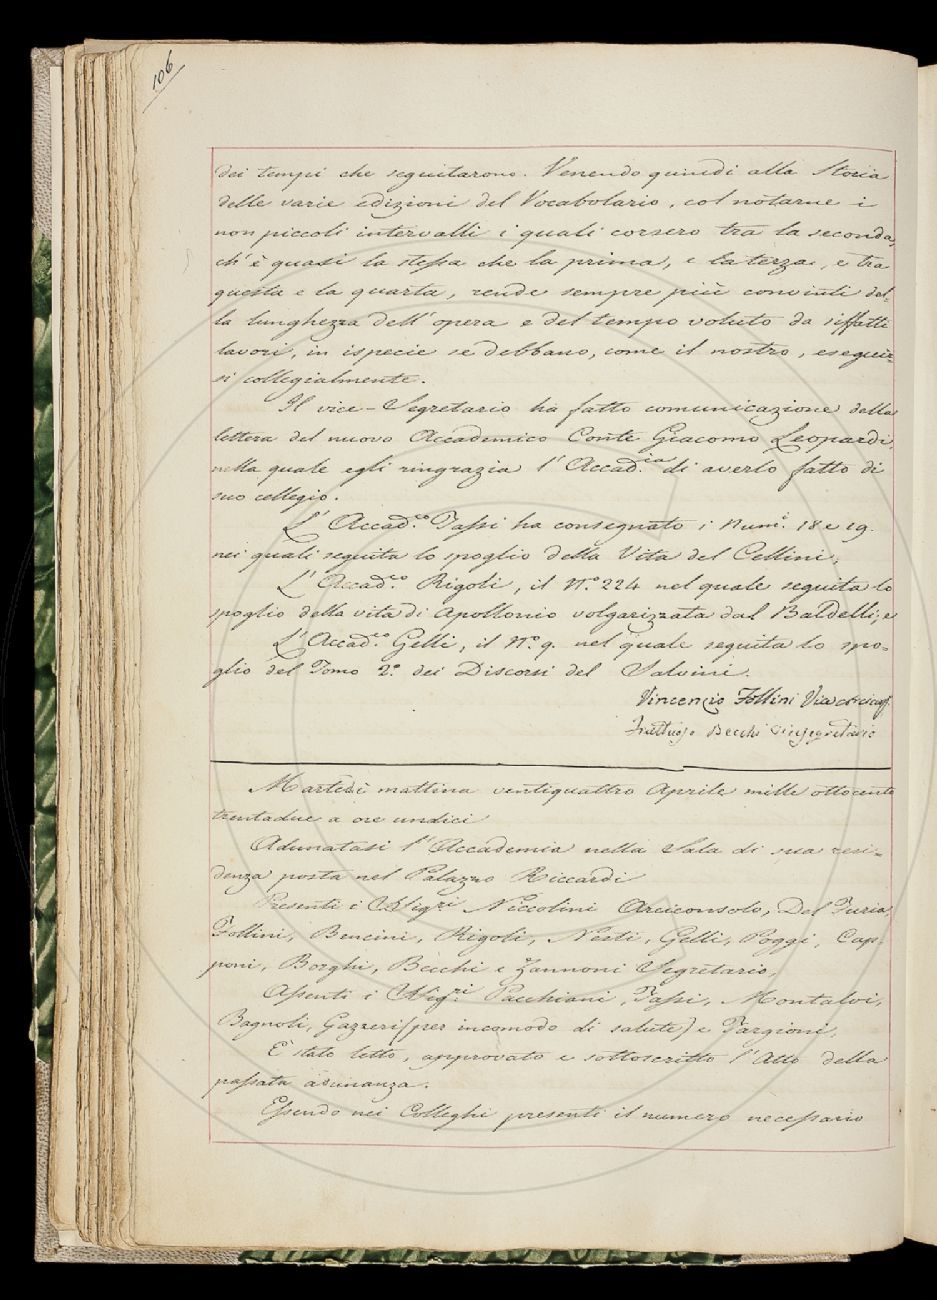 106
dei tempi che seguitarono. Venendo quindi alla Storia
delle varie edizioni del Vocabolario, col notarne i
non piccoli intervalli i quali corsero tra la seconda,
ch'è quasi la stessa che la prima, e la terza, e tra
questa e la quarta, rende sempre più convinti del-
la lunghezza dell'opera e del tempo voluto da siffatti
lavori, in ispecie se debbano, come il nostro, eseguir-
si collegialmente.
Il vice-Segretario ha fatto comunicazione della
lettera del nuovo Accademico Conte Giacomo Leopardi,
nella quale egli ringrazia l'Accad.ia di averlo fatto di
suo collegio.
L'Accad.co Tassi ha consegnato i Num.i 18 e 19.
nei quali seguita lo spoglio della Vita del Cellini,
L'Accad.co Rigoli, il N.o 224 nel quale seguita lo
spoglio della vita di Apollonio volgarizzata dal Baldelli; e
L'Accad.co Gelli, il N.o 9. nel quale seguita lo spo-
glio del Tomo 2.o dei Discorsi del Salvini.
Vincenzio Follini
Fruttuoso Becchi Vicesegretario
Martedì mattina ventiquattro Aprile mille ottocento
trentadue a ore undici
Adunatasi l'Accademia nella Sala di sua resi-
denza posta nel Palazzo Riccardi
Presenti i Sigg.ri Niccolini Arciconsolo, Del Furia,
Follini, Bencini, Rigoli, Nesti, Gelli, Poggi, Cap-
poni, Borghi, Becchi e Zannoni Segretario,
Assenti i Sigg.ri Pacchiani, Tassi, Montalvi,
Bagnoli, Gazzeri (per incomodo di salute) e Targioni,
E' stato letto, approvato e sottoscritto l'Atto della
passata adunanza.
Essendo nei Colleghi presenti il numero necessario